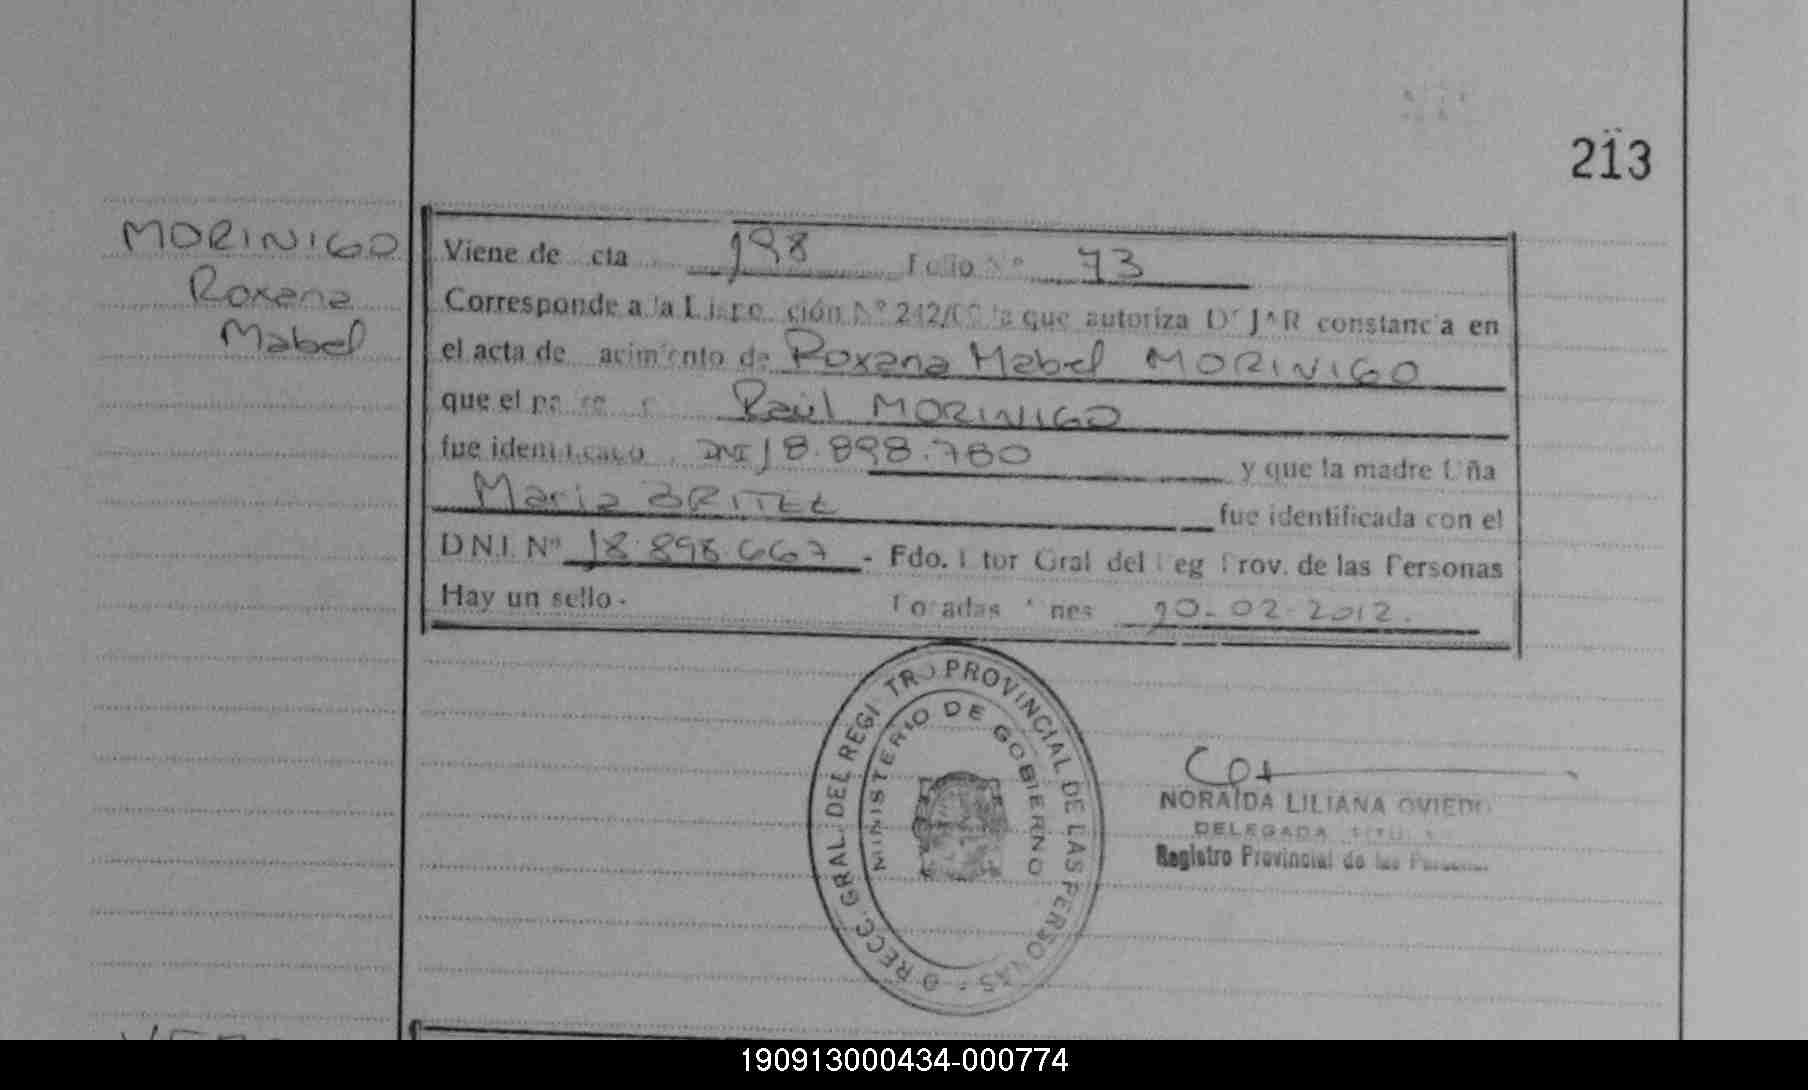 213
MORINIGO
Roxana
Mabel
Viene de cta 198 Folio Nº 73
Corresponde a la Dispo ción Nº 242/00 la que autoriza D J R constanc a en
el acta de acimiento de Roxana Mabel MORINIGO
que el Raúl MORINIGO
fue identificado DNI 18.898.780 y que la madre ña
Maria BRITEZ fue identificada con el
DNI. Nº 18.898.667 - Fdo. tor Gral del eg Prov. de las Personas
Hay un sello - Posadas nes 20-02-2012.
DIRECC. GRAL. DEL REGI TRO PROVINCIAL DE LAS PERSONAS
MINISTERIO DE GOBIERNO
NORAIDA LILIANA OVIEDO
DELEGADA TITULAR
Registro Provincial de las Personas
190913000434-000774